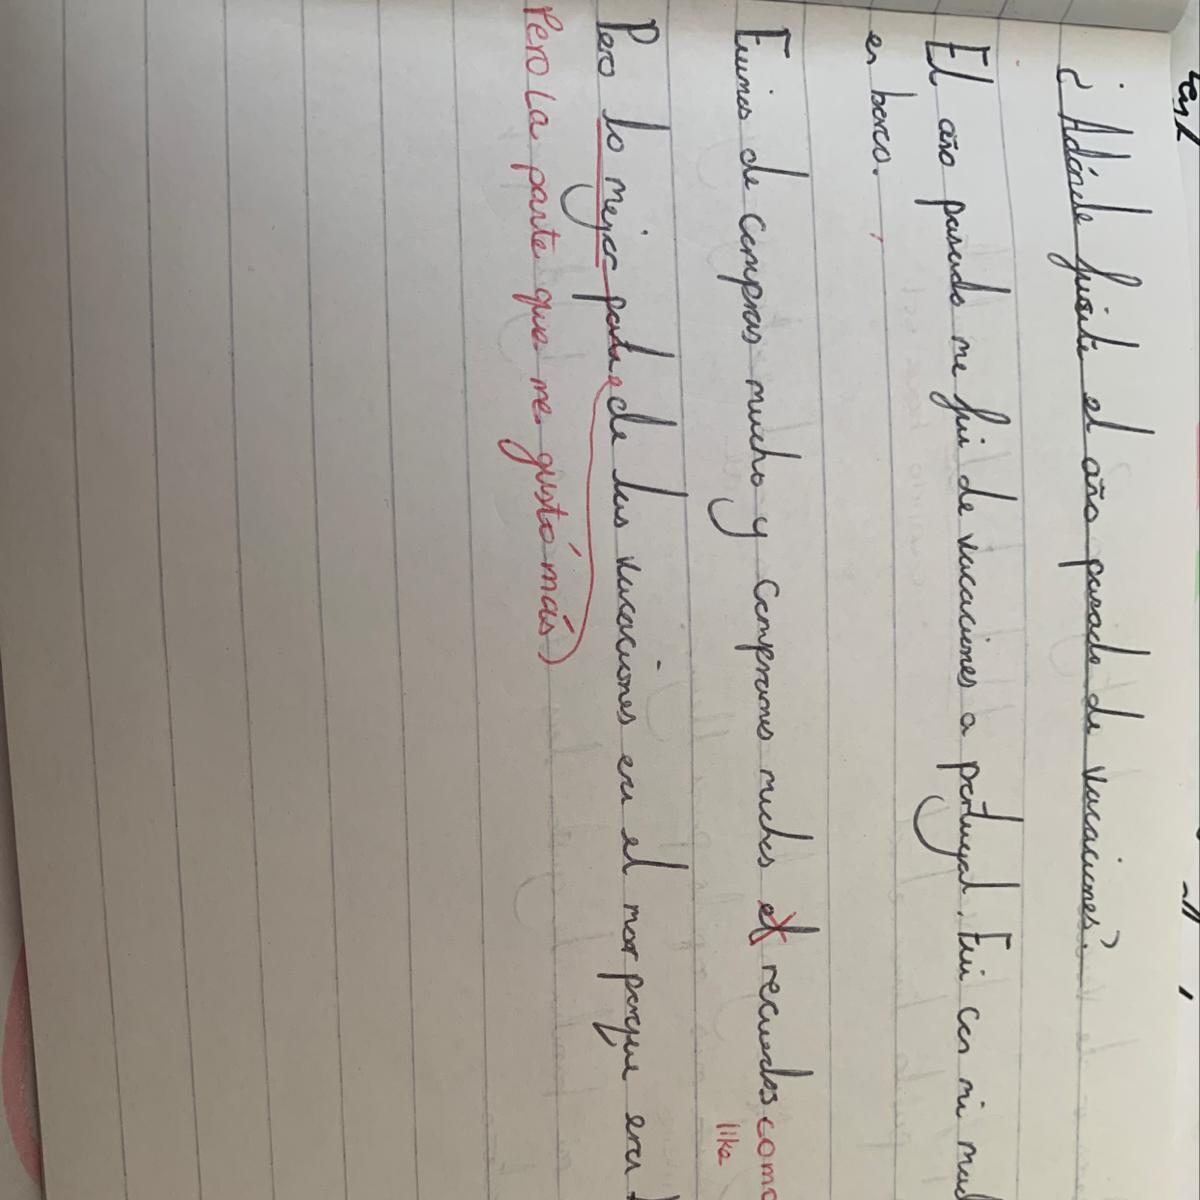 ¿Adónde fuiste el año pasado de vacaciones?
El año pasado me fui de vacaciones a portugal. Fui con mi
en barco.
Fuimos de compras mucho y compramos muchos el recuerdos como
like
Pero lo mejor parte de las vacaciones era el mar porque era
Pero La parte que me gustó más